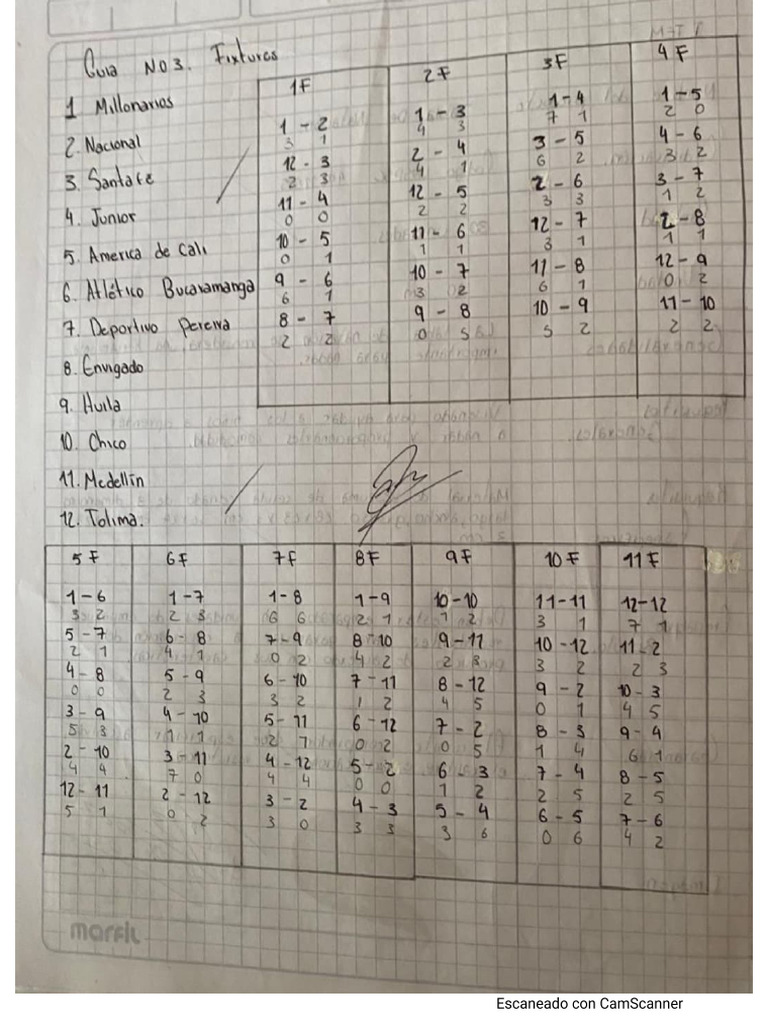 Guia NO3. Fixturas
1 Millonarios
2. Nacional
3. Santafe
4. Junior
5. America de Cali
6. Atlético Bucaramanga
7. Deportivo Pereira
8. Envigado
9. Huila
10. Chico
11. Medellín
12. Tolima.
1F 2F 3F 4F
1 - 2 1 - 3 1-4 1-5
3 1 4 3 7 1 2 0
12 - 3 2 - 4 3 - 5 4 - 6
2 3 4 1 6 2 3 2
11 - 4 12 - 5 2 - 6 3 - 7
0 0 2 2 3 3 1 2
10 - 5 11 - 6 12 - 7 2 - 8
0 1 1 1 3 1 1 1
9 - 6 10 - 7 11 - 8 12 - 9
6 1 3 2 6 1 0 2
8 - 7 9 - 8 10 - 9 11 - 10
2 2 0 5 5 2 2 2
5F 6F 7F 8F 9F 10F 11F
1-6 1-7 1-8 1-9 10-10 11-11 12-12
3 2 2 3 6 6 2 1 1 2 3 1 7 1
5-7 6-8 7-9 8-10 9-11 10-12 11-2
2 1 4 1 0 2 4 2 2 3 3 2 2 3
4-8 5-9 6-10 7-11 8-12 9-2 10-3
0 0 2 3 3 2 1 2 4 5 0 1 4 5
3-9 4-10 5-11 6-12 7-2 8-3 9-4
5 3 1 1 2 7 0 2 0 5 1 4 6 1
2-10 3-11 4-12 5-2 6-3 7-4 8-5
4 4 7 0 4 4 0 0 1 2 2 5 2 5
12-11 2-12 3-2 4-3 5-4 6-5 7-6
5 1 0 2 3 0 3 3 3 6 0 6 4 2
marfil
Escaneado con CamScanner